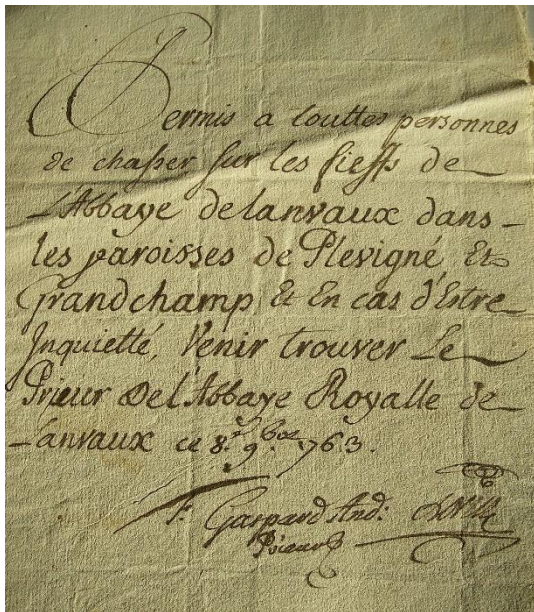 Permis a touttes personnes
de chasser sur les fieffs de
L'Abbaye de lanvaux dans
les paroisses de Plevigné Et
Grandchamp Et En cas d'Estre
Inquietté, Venir trouver Le
Prieur De l'Abbaye Royalle de
Lanvaux ce 8. 9bre 1763.
f: Gaspard And:
Prieur